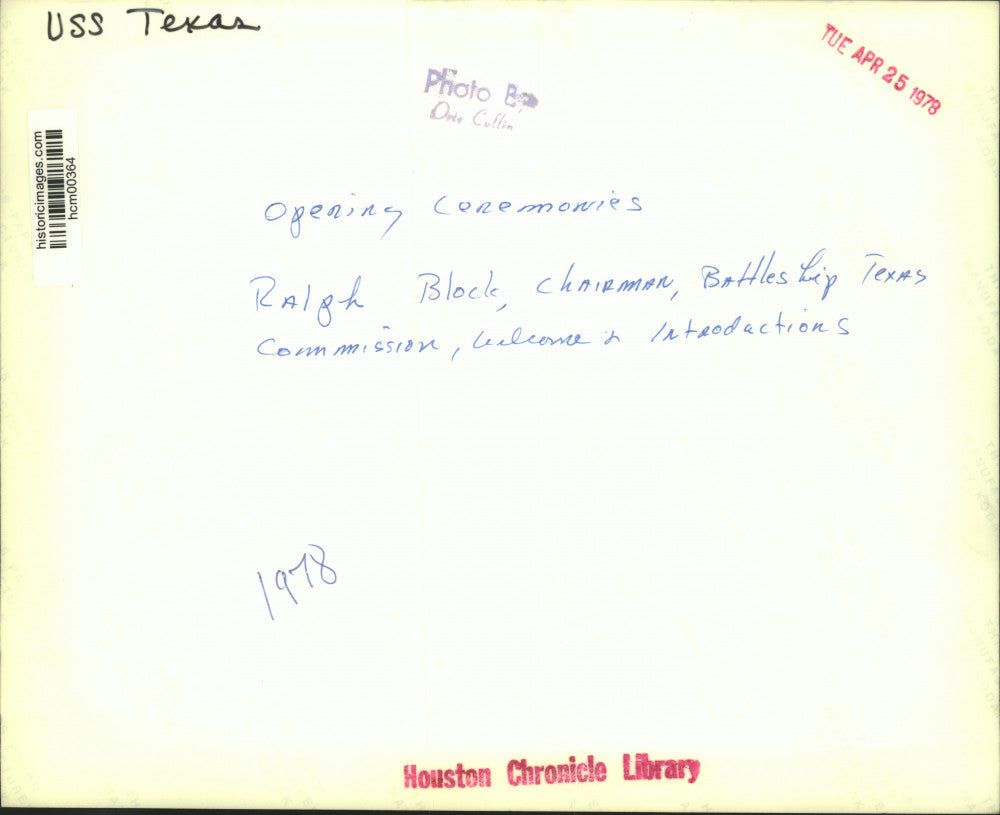 USS Texas
TUE APR 25 1978
Photo By
historicimages.com
hcm00364
Opening Ceremonies
Ralph Block, Chairman, Battleship Texas
Commission, Welcome & Introductions
1978
Houston Chronicle Library